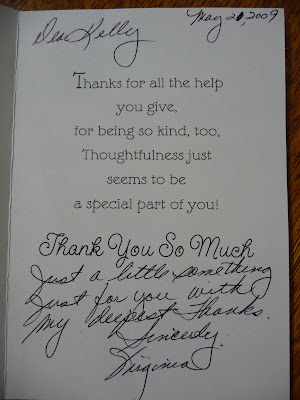 May 21, 2009
Dear Kelly
Thanks for all the help
you give,
for being so kind, too,
Thoughtfulness just
seems to be
a special part of you!
Thank You So Much
Just a little something
Just for you with
My deepest Thanks.
Sincerly,
Virginia